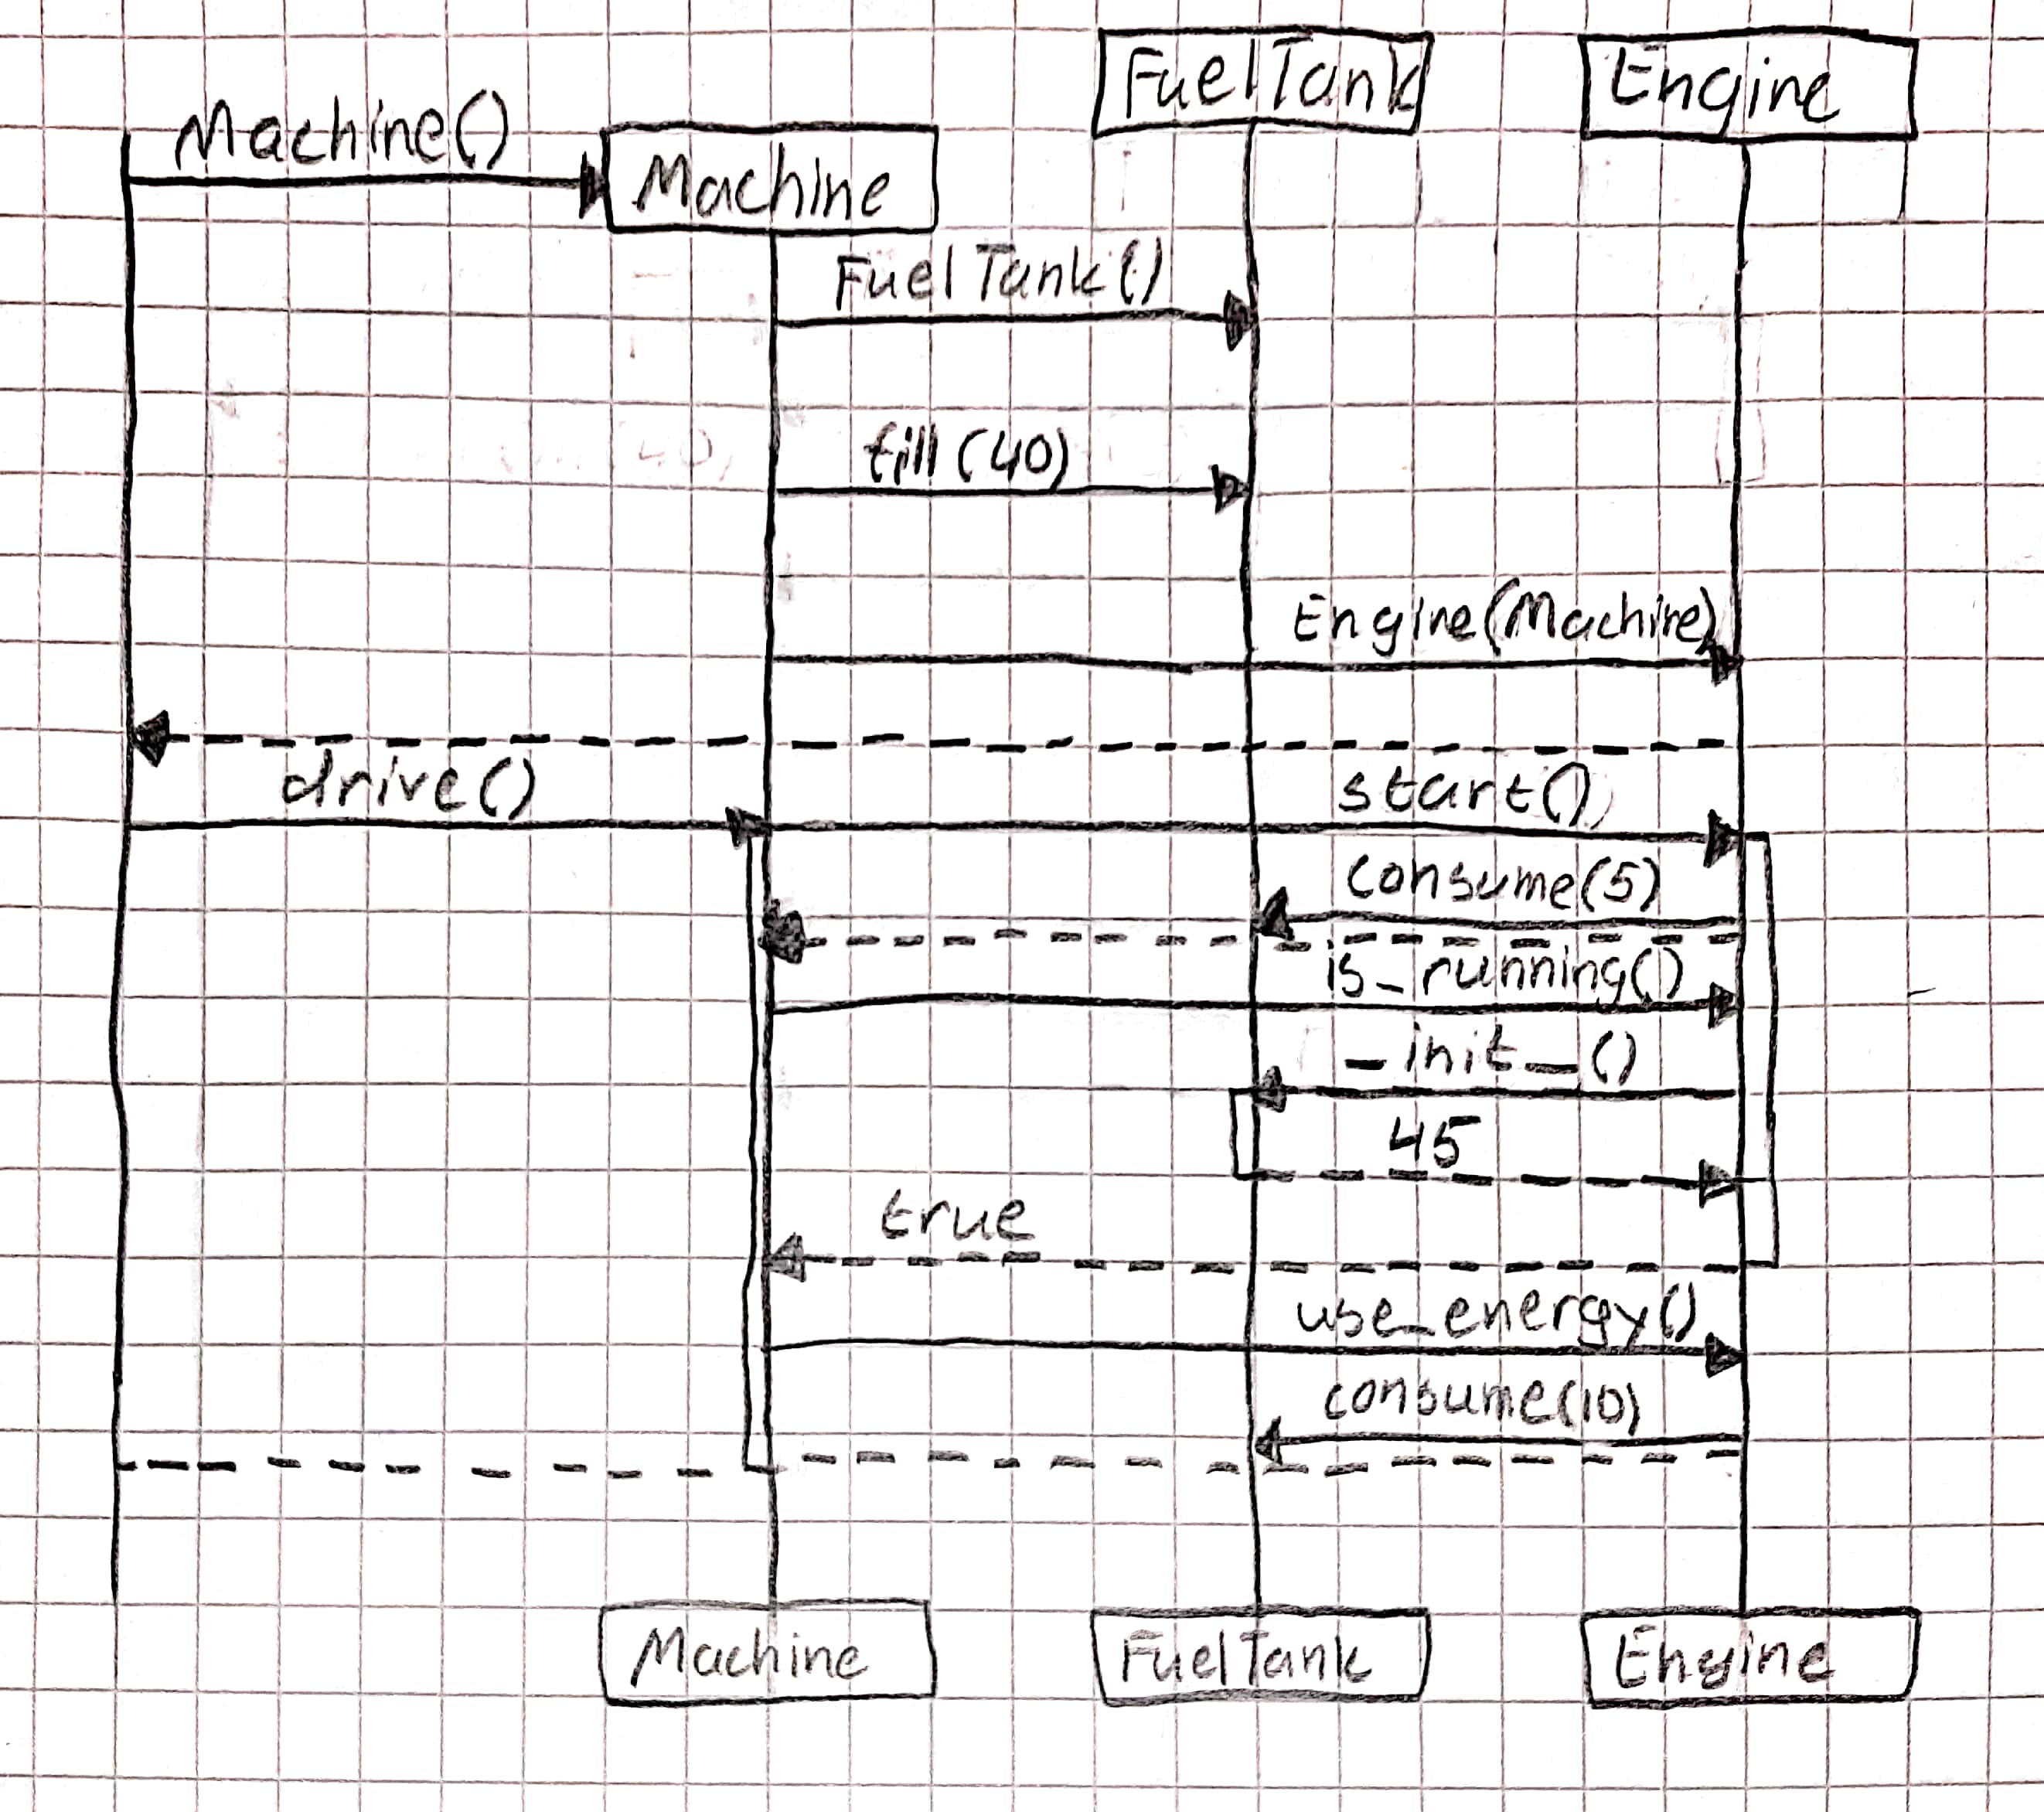 FuelTank
Engine
Machine()
Machine
FuelTank()
fill(40)
Engine(Machine)
drive()
start()
consume(5)
is_running()
_init_()
45
true
use_energy()
consume(10)
Machine
FuelTank
Engine